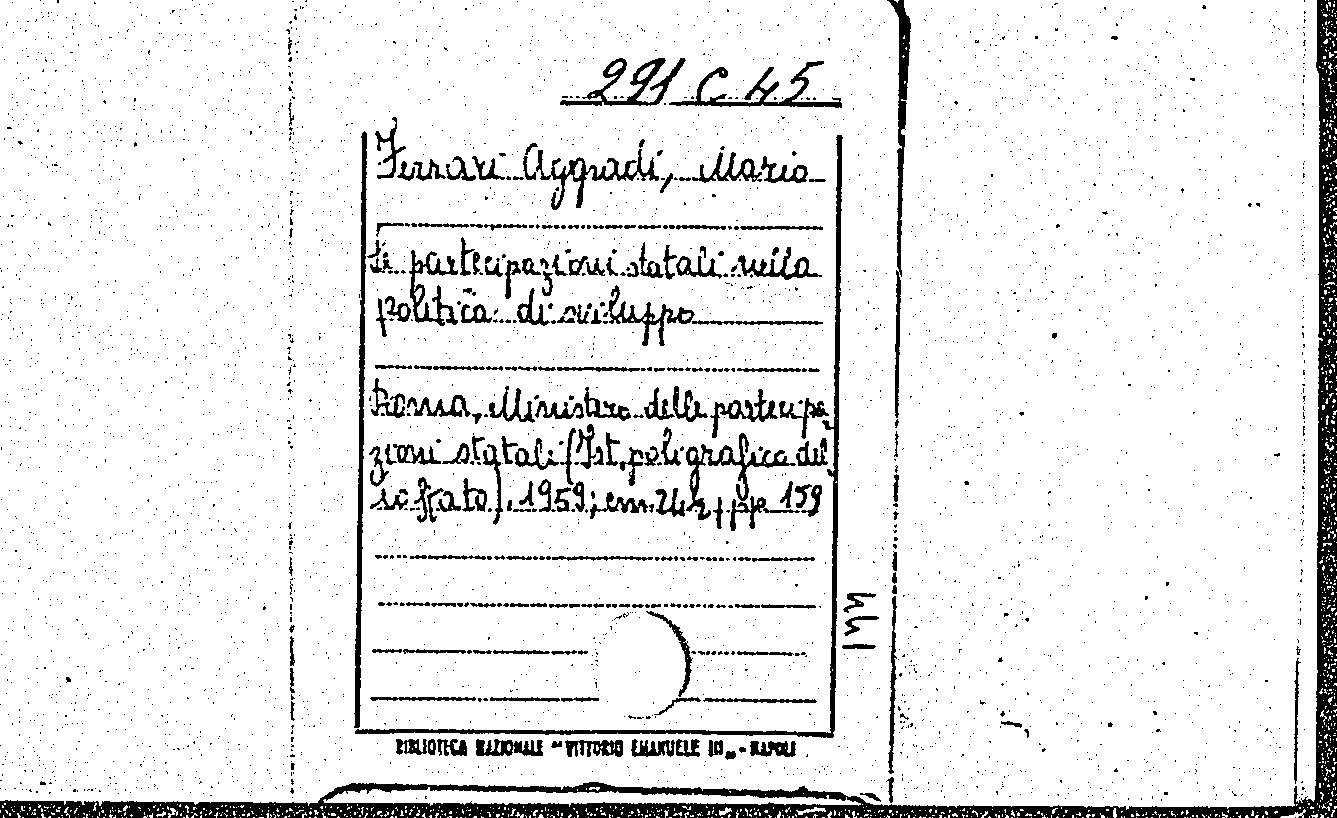 291 C 45
Ferrari Aggradi, Mario
Le partecipazioni statali nella
politica di sviluppo
Roma, Ministero delle partecipa-
zioni statali (Ist. poligrafico del-
lo Stato), 1959; cm. 24, pp. 159
144
BIBLIOTECA NAZIONALE "VITTORIO EMANUELE III" - NAPOLI